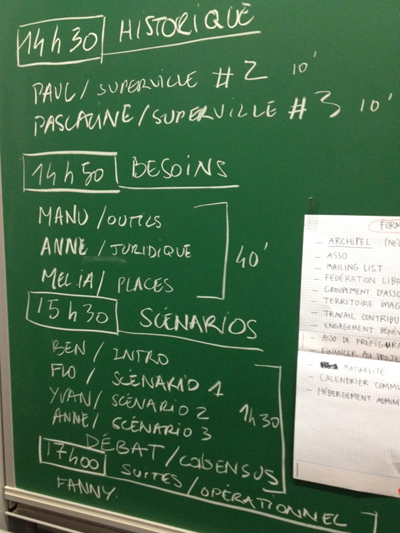 14h30 HISTORIQUE
PAUL / SUPERVILLE #2 10'
PASCALINE / SUPERVILLE #3 10'
14h50 BESOINS
MANU / OUTILS
ANNE / JURIDIQUE
MELIA / PLACES
40'
15h30 SCÉNARIOS
BEN / INTRO
FLO / SCÉNARIO 1
YVAN / SCÉNARIO 2
ANNE / SCÉNARIO 3
DÉBAT / COBENSUS
1h30
17h00 SUITES / OPÉRATIONNEL
FANNY.
FORM
- ARCHIPEL
- ASSO
- MAILING LIST
- FÉDÉRATION LIBR
- GROUPEMENT D'ASSO
- TERRITOIRE IMAG
- TRAVAIL CONTRIBUT
- ENGAGEMENT BÉNÉV
- ASSO DE PRÉFIGURA
- FINANCER AU PROJE
- MUTUALITÉ
- CALENDRIER COMMU
- HÉBERGEMENT